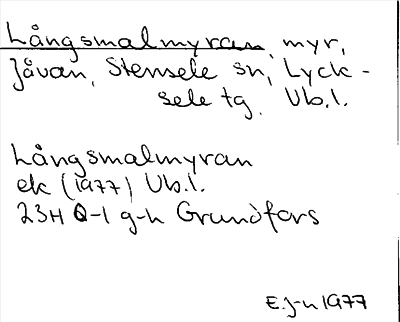 Långsmalmyran, myr,
Jåvan, Stensele sn, Lyck-
sele tg. Vb.l.
Långsmalmyran
ek (1977) Vb.l.
23H 0-1 g-h Grundfors
E.J-n 1977